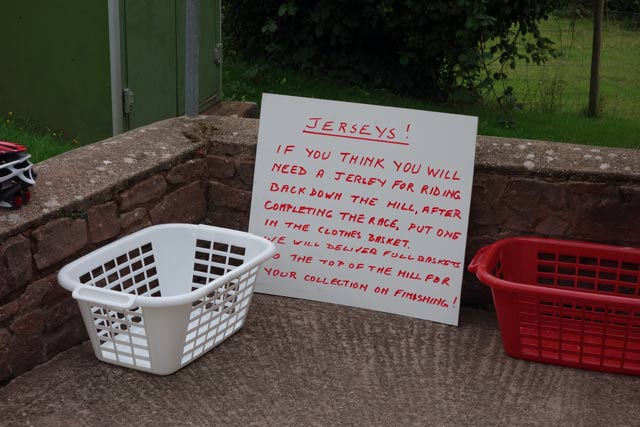 JERSEYS!
IF YOU THINK YOU WILL
NEED A JERSEY FOR RIDING
BACK DOWN THE HILL, AFTER
COMPLETING THE RACE, PUT ONE
IN THE CLOTHES BASKET.
WE WILL DELIVER FULL BASKETS
TO THE TOP OF THE HILL FOR
YOUR COLLECTION ON FINISHING!